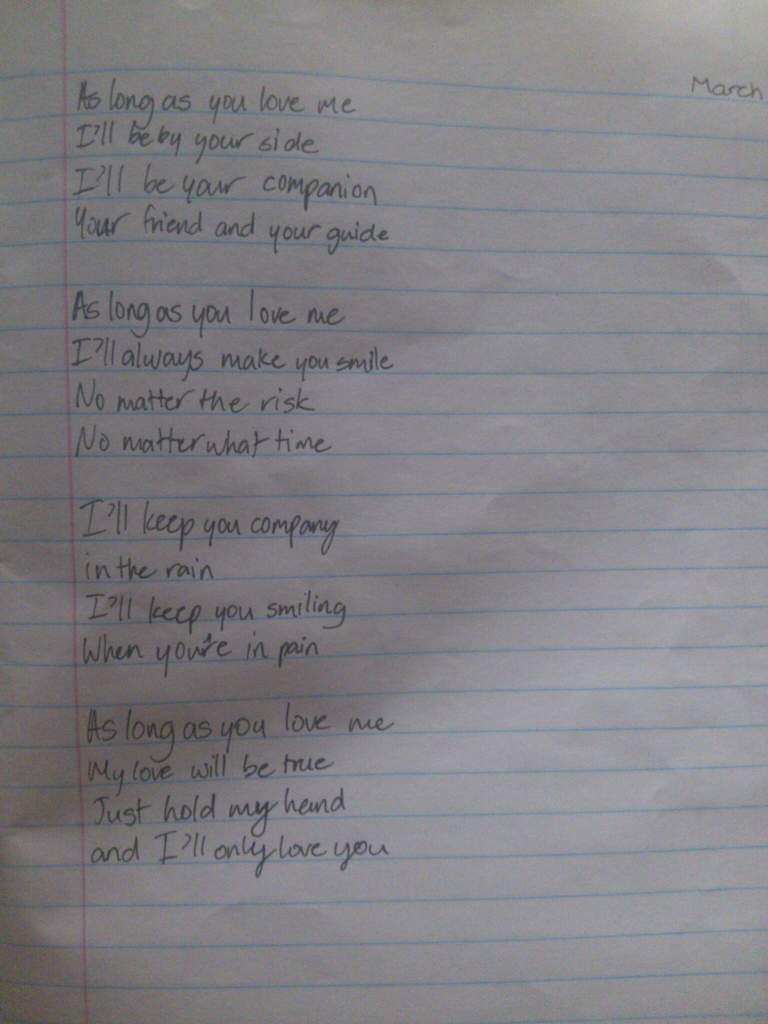 March
As long as you love me
I'll be by your side
I'll be your companion
Your friend and your guide
As long as you love me
I'll always make you smile
No matter the risk
No matter what time
I'll keep you company
in the rain
I'll keep you smiling
When you're in pain
As long as you love me
My love will be true
Just hold my hand
and I'll only love you